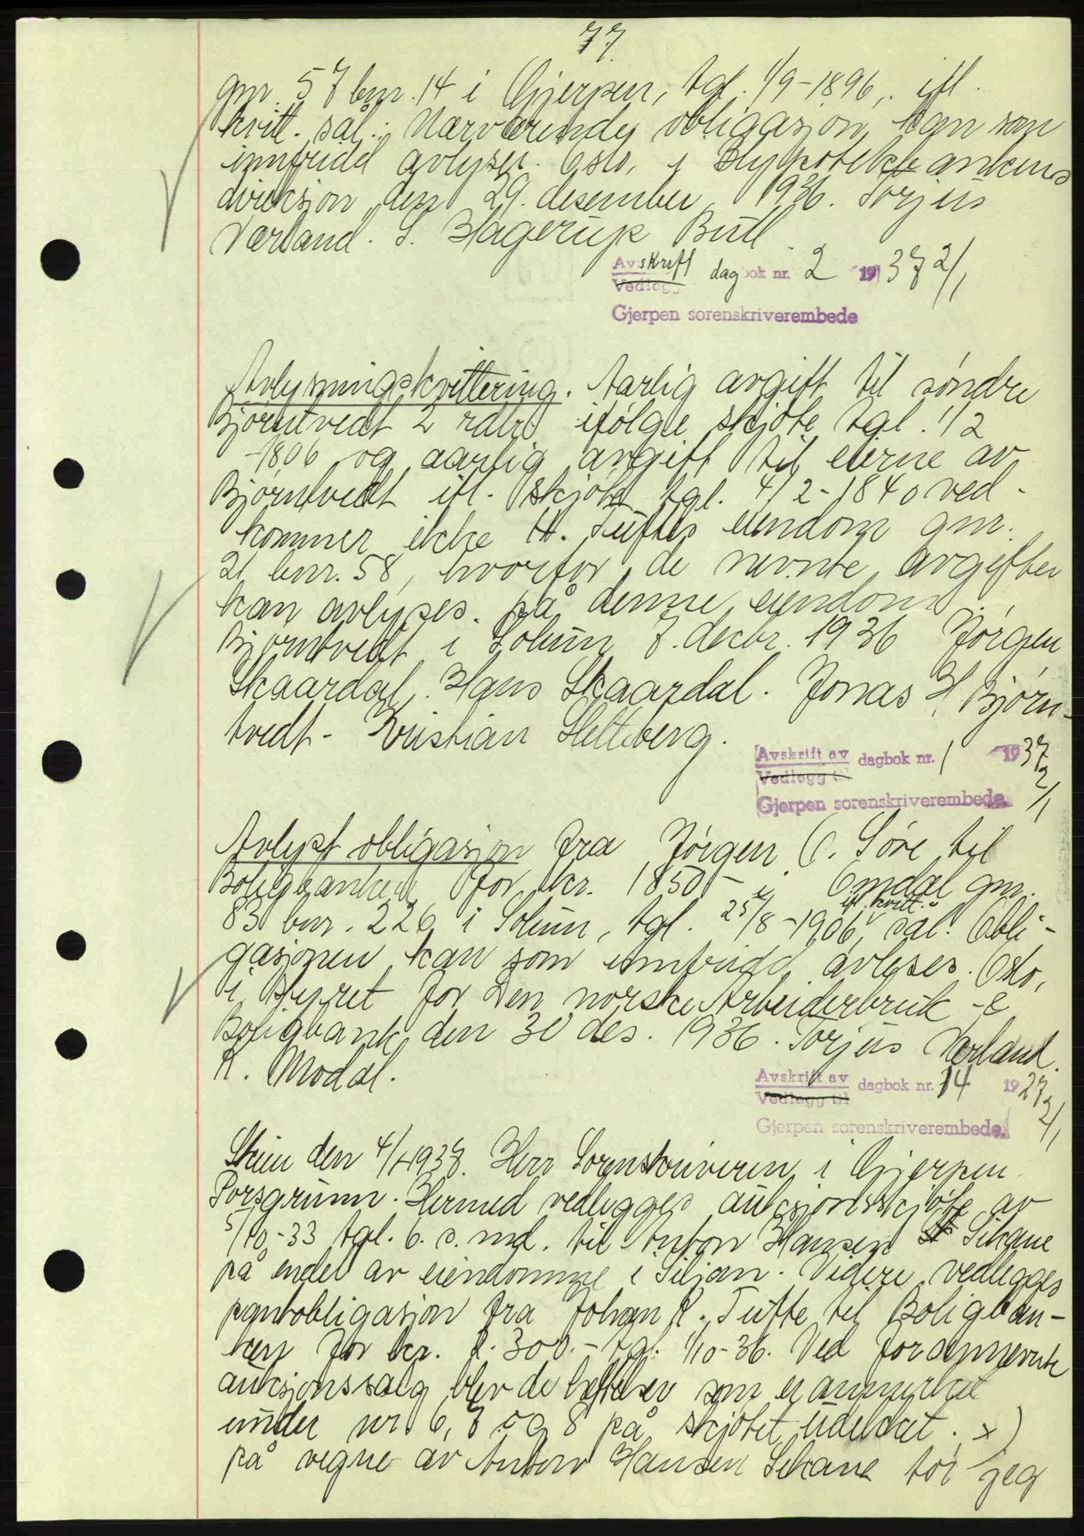 77.
gnr. 57 bnr. 14 i Gjerpen, tgl. 1/9-1896, ifl.
kvitt. sål.: Nærværende obligasjon kan som
innfridd avlyses. Oslo, i Hypotekbankens
direksjon den 29. desember 1936. Torjus
Værland. S. Hagerup Bull.
Avskrift dagbok nr. 2 1937 2/1
Vedlegg
Gjerpen sorenskriverembede
Avlysningskvittering. Aarlig avgift til søndre
Bjørntvedt 2 rdlr ifølge skjøte tgl. 1/2
-1806 og aarlig avgift til eierne av
Bjørntvedt ifl. skjøte tgl. 4/2-1840 ved-
kommer ikke H. Tuftes eiendom gnr.
21 bnr. 58, hvorfor de nevnte avgifter
kan avlyses på denne eiendom.
Bjørntvedt i Solum 7. decbr. 1936 Jørgen
Skaardal. Hans Skaardal. Jonas H. Bjørn-
tvedt. Kristian Sletteberg.
Avskrift av dagbok nr. 1 1937 2/1
Vedlegg til
Gjerpen sorenskriverembede.
Avlyst obligasjon fra Jørgen C. Søre til
Boligbanken for kr. 1850.- i Omdal gnr.
83 bnr. 226 i Solum, tgl. 25/8-1906, ifl. kvitt. sål.: Obli-
gasjonen kan som innfridd avlyses. Oslo,
i Styret for Den norske Arbeiderbruk- &
Boligbank den 30 des. 1936. Torjus Værland.
K. Modal.
Avskrift av dagbok nr. 14 1937 2/1
Vedlegg til
Gjerpen sorenskriverembede.
Skien den 4/1-1937. Herr Sorenskriveren i Gjerpen
Porsgrunn. Hermed vedlegges auksjonsskjøte av
5/10-33 tgl. 6. s. md. til Anton Hansen Sikane
på endel av eiendomme i Siljan. Videre vedlegges
pantobligasjon fra Johan K. Tufte til Boligban-
ken for kr. 2.300.- tgl. 1/10-36. Ved fornevnte
auksjonssalg blev de heftelser som er anmerket
under nr 6, 7 og 8 på skjøtet udekket. x)
på vegne av Anton Hansen Sikane tør jeg